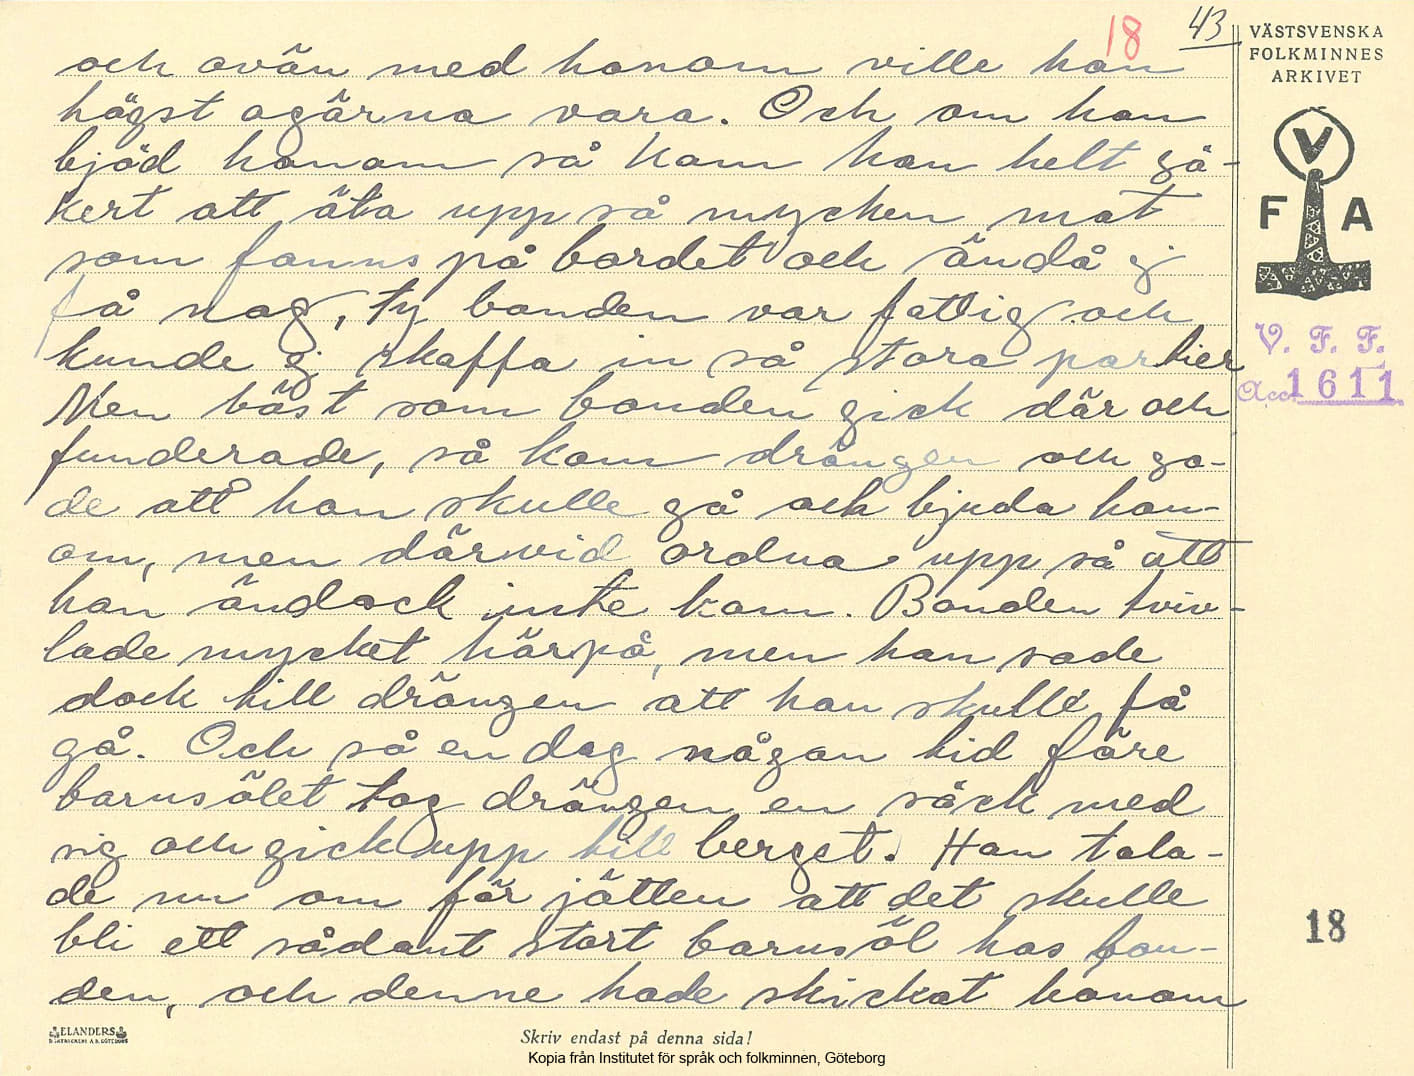 18
43
VÄSTSVENSKA
FOLKMINNES
ARKIVET
och ovän med honom ville han
högst ogärna vara. Och om han
bjöd honom så kom han helt sä-
kert att äta upp så mycken mat
som fanns på bordet och ändå ej
få nog, ty bonden var fattig och
kunde ej skaffa in så stora partier
Men bäst som bonden gick där och
funderade, så kom drängen och sa-
de att han skulle gå och bjuda hon-
om, men därvid ordna upp så att
han ändock inte kom. Bonden tviv-
lade mycket härpå, men han sade
dock till drängen att han skulle få
gå. Och så en dag någon tid före
barnsölet tog drängen en säck med
sig och gick upp till berget. Han tala-
de nu om för jätten att det skulle
bli ett sådant stort barnsöl hos bon-
den, och denne hade skickat honom
V
F A
V. F. F.
Acc. 1611
18
ELANDERS
BOKTRYCKERI A.B. GÖTEBORG
Skriv endast på denna sida!
Kopia från Institutet för språk och folkminnen, Göteborg